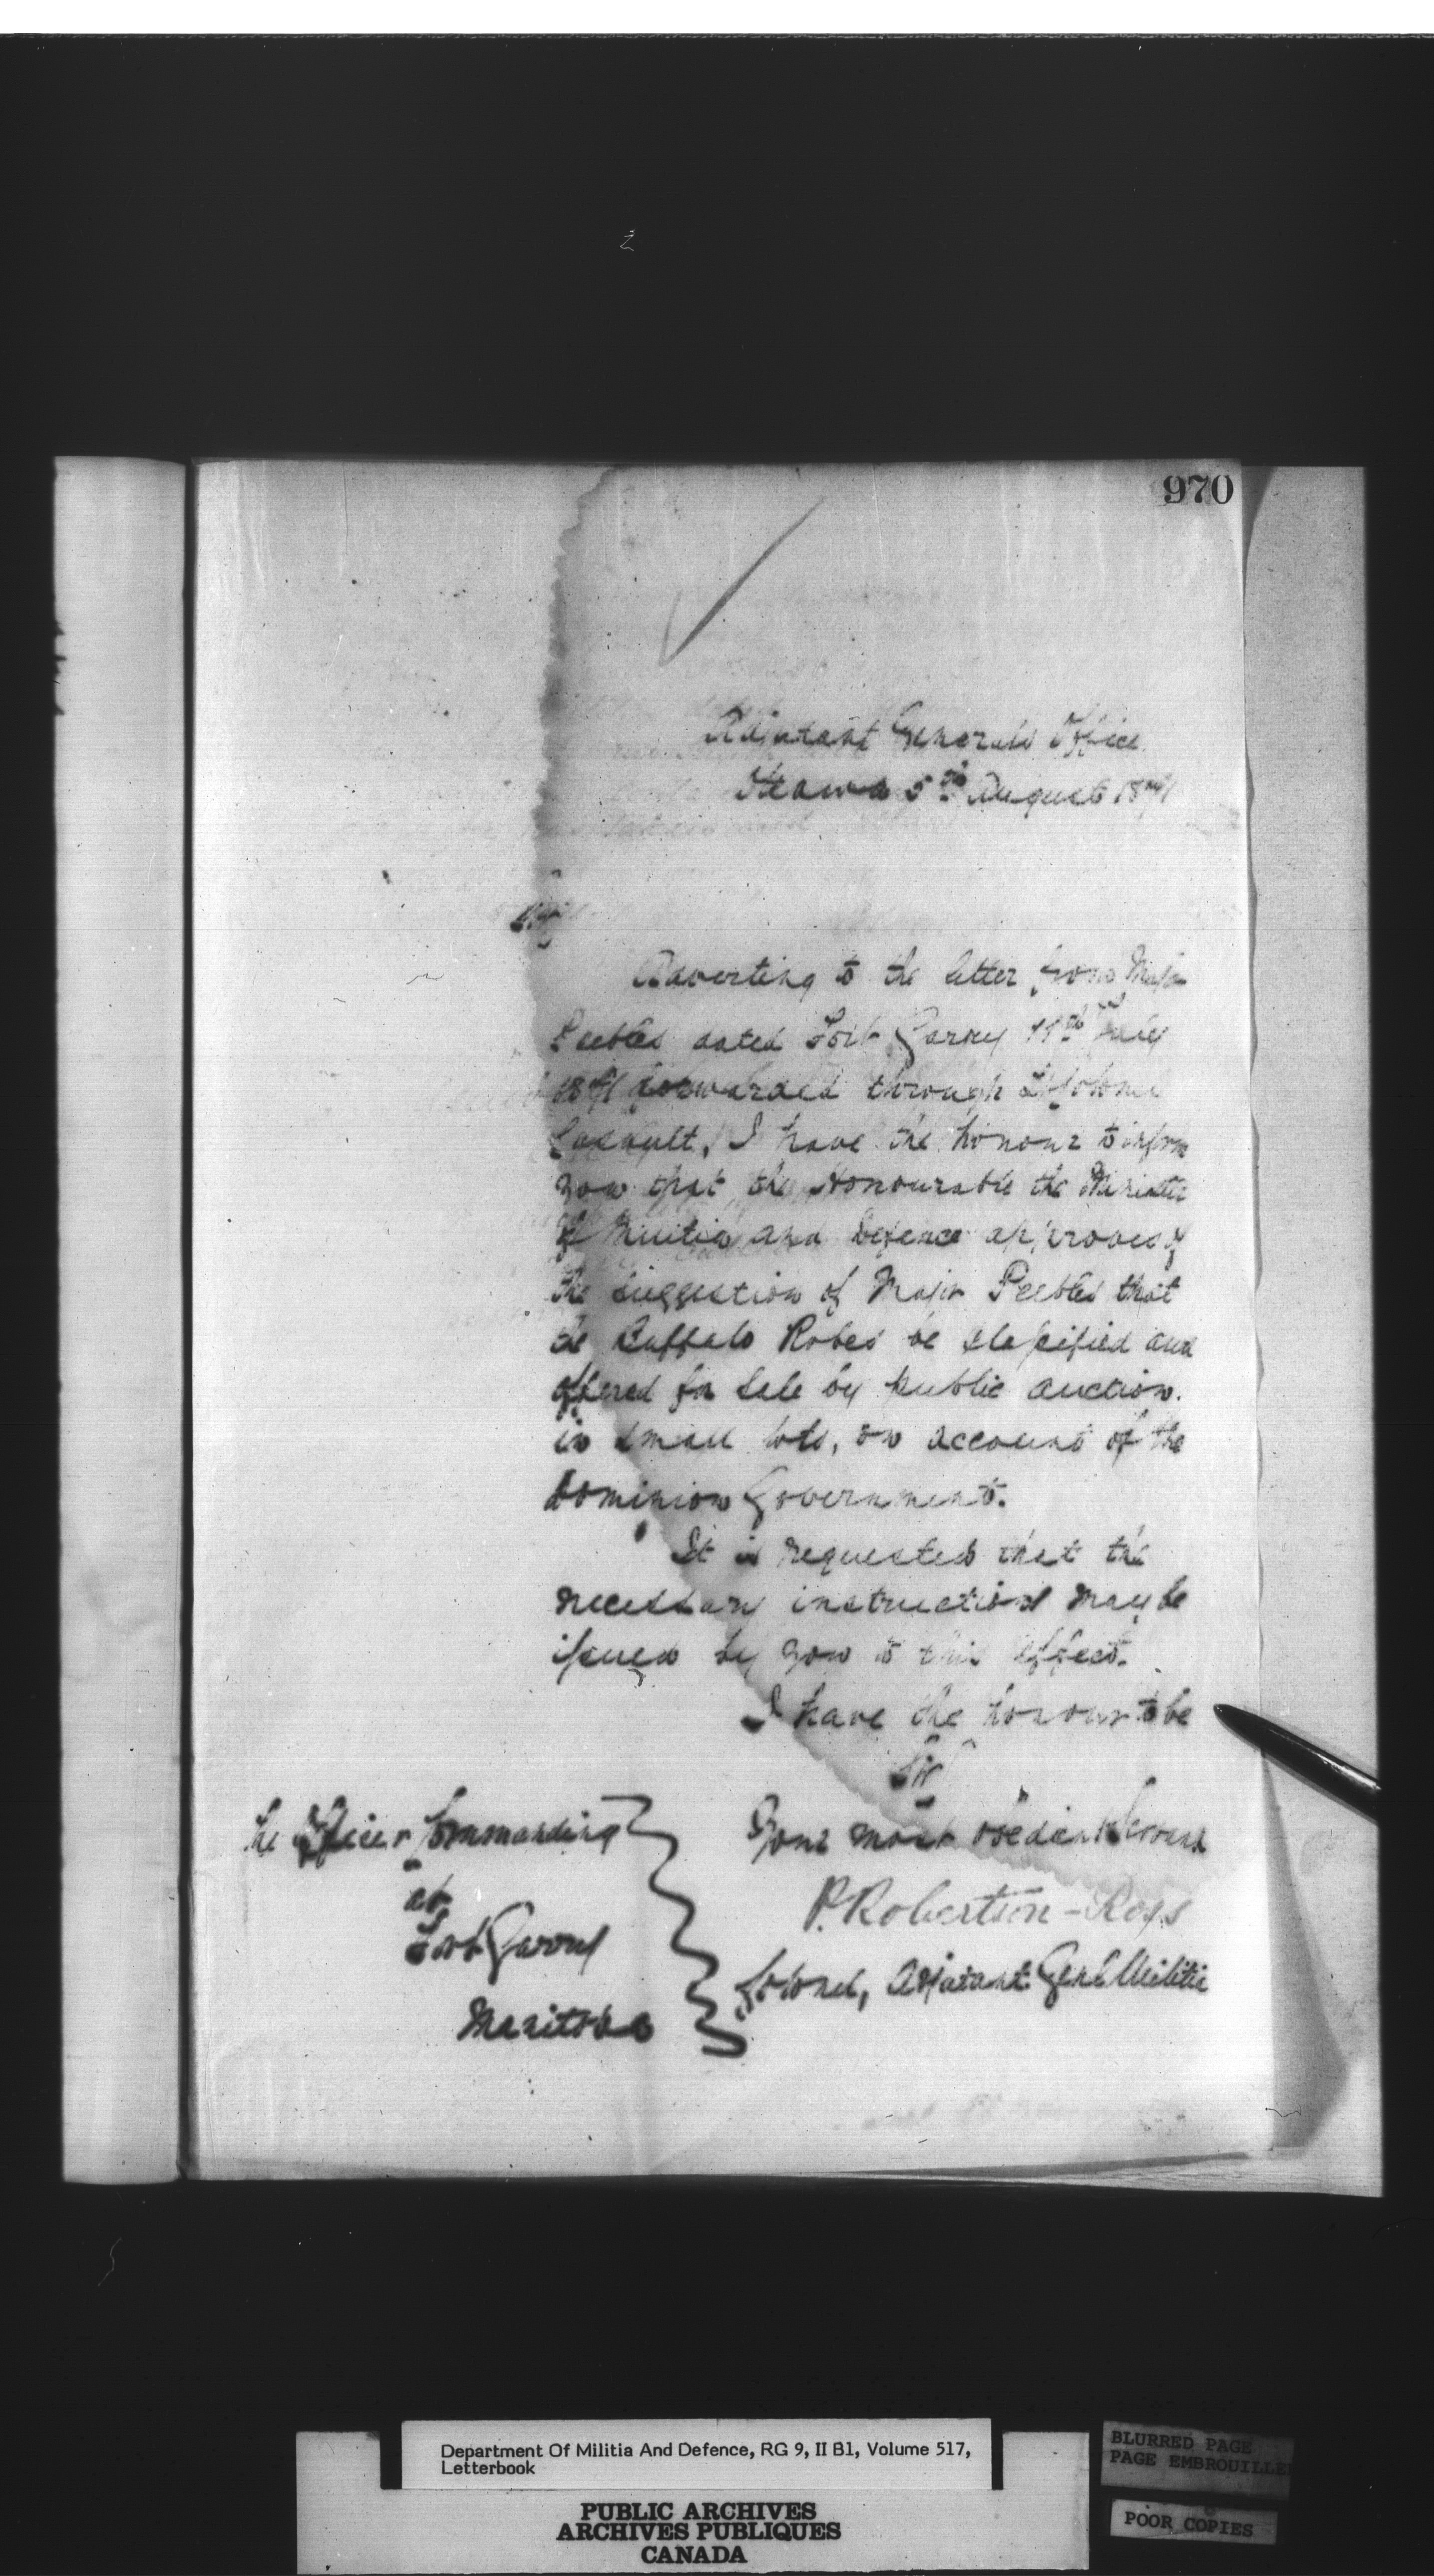 970
Adjutant Generals Office
Ottawa 5th August 1871
Sir
Adverting to the letter from Major
Peebles dated Fort Garry 11th July
1871 forwarded through Lt Colonel
Casault, I have the honour to inform
you that the Honourable the Minister
of Militia and Defence approves of
the suggestion of Major Peebles that
the Buffalo Robes be classified and
offered for sale by public auction.
in small lots, on account of the
Dominion Government.
It is requested that the
necessary instructions may be
issued by you to this effect.
I have the honour to be
Sir
Your most obedient Servant
P. Robertson-Ross
Colonel, Adjutant Genl Militia
The Officer Commanding
at
Fort Garry
Manitoba
Department Of Militia And Defence, RG 9, II B1, Volume 517,
Letterbook
PUBLIC ARCHIVES
ARCHIVES PUBLIQUES
CANADA
BLURRED PAGE
PAGE EMBROUILLE
POOR COPIES